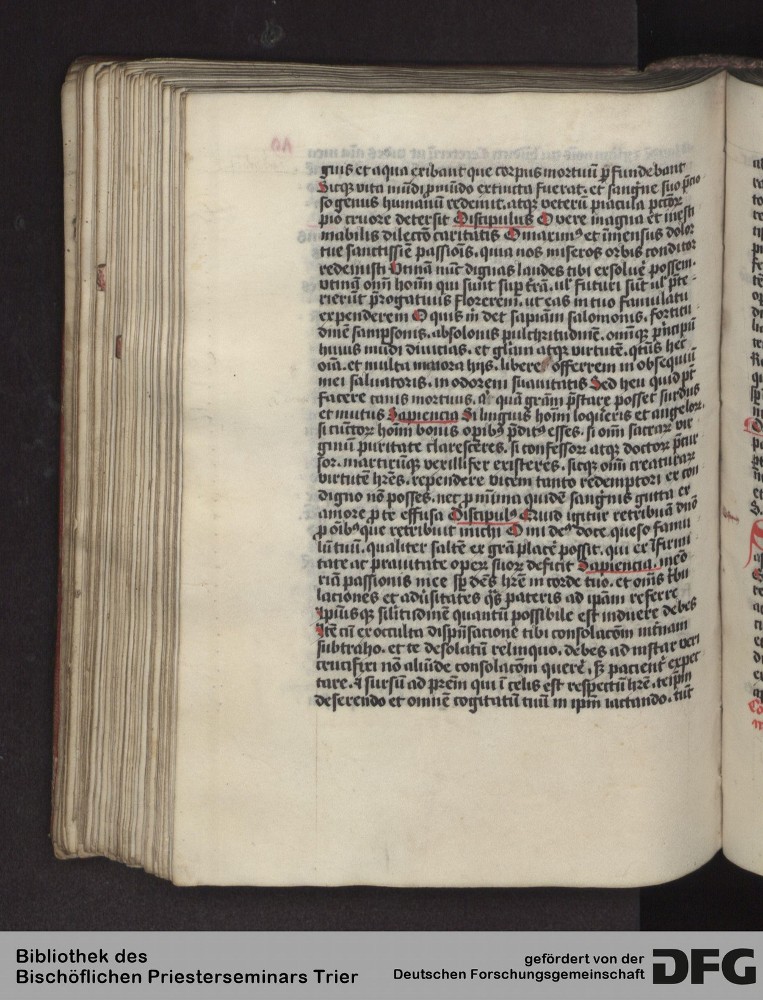 guis et aqua exibant que corpus mortuū ꝑfundebant
Sicqꝫ vita mūdi ꝓ mūdo extincta fuerat. et sangīne suo p̄cio
so genus humanū redemit. atqꝫ veterū piacula pctōꝝ
pio cruore detersit Discipulus O vere magna et inesti
mabilis dilectōis caritatis O marinꝰ et īmensus dolor
tue sanctissīe passiōis. quia nos miseros orbis conditor
redemisti Utinā nūc dignas laudes tibi exsoluē possem.
vtinā om̄ hoīm qui sunt sup t̄rā. ul' futuri sūt ul' p̄te
rierūt p̄rogatiuis florerem. ut eas in tuo famulatu
expenderem O quis m̄ det sapiām salomonis. fortitu
dinē sampsonis. absolonis pulchritudinē. om̄qꝫ p̄ncipū
huius mūdi diuicias. et gl'am atqꝫ virtutē. qt̄us hec
oīa. et multa maiora hijs. libere offerrem in obsequiū
mei saluatoris. in odorem suauitatis Sed heu quid p̄t
facere canis mortuus. a' quā grām p̄stare posset surdus
et mutus Sapiencia Si linguis hoīm loqueris et angeloꝝ.
si cūctoꝝ hoīm bonis opibꝰ p̄ditꝰ esses. si om̄ sacraꝝ vir
ginū puritate claresceres. si confessoꝝ atqꝫ doctoꝝ
martirūqꝫ vexillifer existeres. sicqꝫ om̄ creaturaꝝ
virtutē h̄res. rependere vicem tanto redemptori ex con
digno nō posses. nec ꝓ mīma quidē sanguīs gutta ex
amore ꝓ te effusa Discipulꝰ Quid igitur retribuā dn̄o
ꝓ oībꝰ que retribuit michi O mi deꝰ doce queso famu
lū tuū. qualiter saltē ex grā placē possit. qui ex īfirmi
tate ac prauitate opeꝝ suoꝝ deficit Sapiencia. meō
riā passionis mee sp̄ dēs h̄re in corde tuo. et om̄s t̄bu
laciones et adūsitates q̄s pateris ad ip̄am referre
Ip̄iusqꝫ silītudinē quantū possibile est induere debes
Itē cū ex occulta disp̄nsacione tibi consolacōm int̄nam
subtraho. et te desolatū relinquo. debes ad instar veri
crucifixi nō aliūde consolacōm querē. sꝫ pacient̄ expec
tare. ⁊ sursū ad prēm qui ī celis est respectū h̄re. teip̄m
deserendo et omnē cogitatū tuū in ip̄m iactando. tūc
Bibliothek des
Bischöflichen Priesterseminars Trier
gefördert von der
Deutschen Forschungsgemeinschaft
DFG